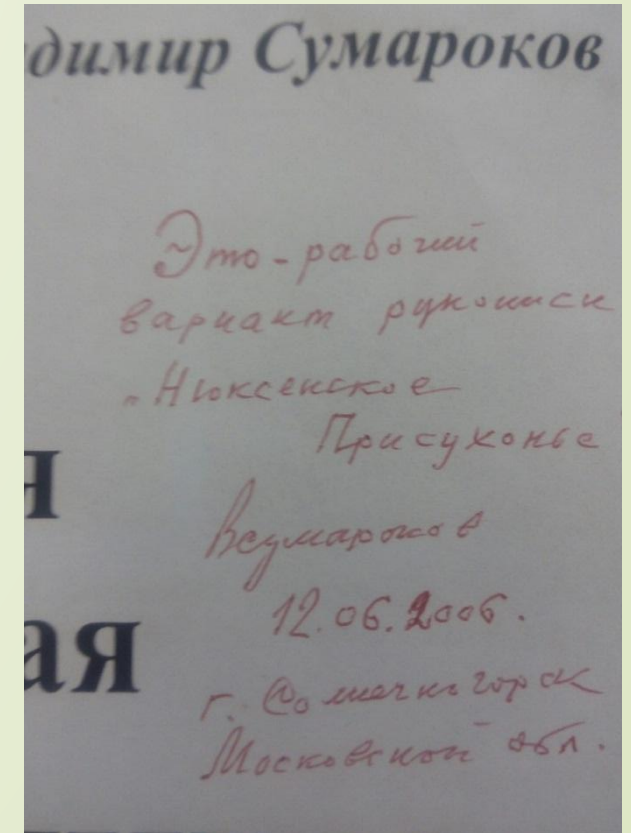 димир Сумароков
Это - рабочий
вариант рукописи
„Нюксенское
Присухонье
Всумароков
12.06.2006.
я
ая
г. Солнечногорск
Московской обл.